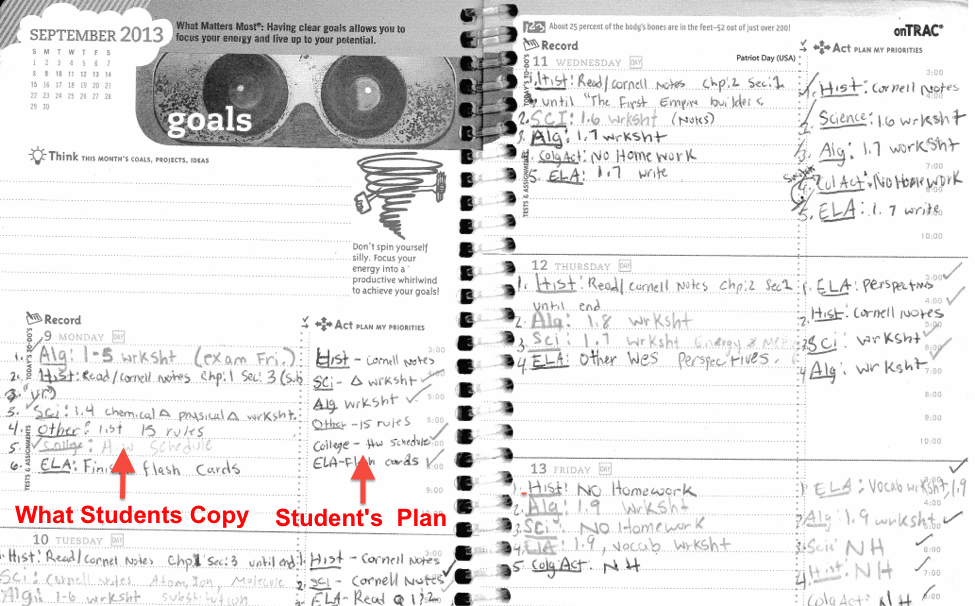 SEPTEMBER 2013
S M T W T F S
1 2 3 4 5 6 7
8 9 10 11 12 13 14
15 16 17 18 19 20 21
22 23 24 25 26 27 28
29 30
What Matters Most®: Having clear goals allows you to
focus your energy and live up to your potential.
goals
Think THIS MONTH'S GOALS, PROJECTS, IDEAS
Don't spin yourself
silly. Focus your
energy into a
productive whirlwind
to achieve your goals!
Record
Act PLAN MY PRIORITIES
TODAY'S TO-DO'S
TESTS & ASSIGNMENTS
9 MONDAY DAY
1. Alg: 1-5 wrksht (exam Fri.)
2. Hist: Read/cornell notes Chp:1 Sec:3 (sub
3. Sci: 1.4 chemical Δ physical Δ wrksht.
4. Other: list 15 rules
5. College: H.w Schedule
6. ELA: Finish flash cards
Hist - cornell notes
Sci - Δ wrksht
Alg wrksht
Other - 15 rules
College - Hw schedule
ELA-Flash cards
3:00
5:00
9:00
What Students Copy
Student's Plan
10 TUESDAY DAY
Hist: Read/cornel Notes Chp:1 Sec:3 until end
Sci: Cornell Notes Atom, Ion, Molecule
Alg: 1-6 wrksht substitution
1. Hist - Cornell Notes
2. Sci - Cornell Notes
3. ELA - Read Q 1,2
3:00
About 25 percent of the body's bones are in the feet—52 out of just over 200!
onTRAC®
Record
Act PLAN MY PRIORITIES
TODAY'S TO-DO'S
TESTS & ASSIGNMENTS
11 WEDNESDAY DAY
Patriot Day (USA)
1. Hist: Read/cornell Notes Chp:2 Sec:1
until "The First Empire builders
2. SCI: 1.6 wrksht (Notes)
3. Alg: 1.7 wrksht
4. ColgAct: No Homework
5. ELA: 1.7 write
1. Hist: Cornell Notes
2. Science: 1.6 wrksht
3. Alg: 1.7 worksht
4. Col Act: No Homework
5. ELA: 1.7 write
3:00
4:00
7:00
9:00
10:00
12 THURSDAY DAY
1. Hist: Read/cornell Notes Chp:2 Sec:2
until end
2. Alg: 1.8 wrksht
3. Sci: 1.7 wrksht Energy &
4. ELA: Other Wes Perspectives.
1. ELA: Perspectives
2. Hist: Cornell notes
3. Sci: wrksht
4. Alg: wrksht
3:00
4:00
5:00
6:00
7:00
8:00
9:00
10:00
13 FRIDAY DAY
1. Hist: NO Homework
2. Alg: 1.9 wrksht
3. Sci: NO Homework
4. ELA: 1.9, vocab wrksht
5. ColgAct. NH
1. ELA: Vocab wrksht, 1.9
2. Alg: 1.9 wrksht
3. Sci: NH
4. Hist: NH
ColgAct: NH
3:00
5:00
6:00
7:00
8:00